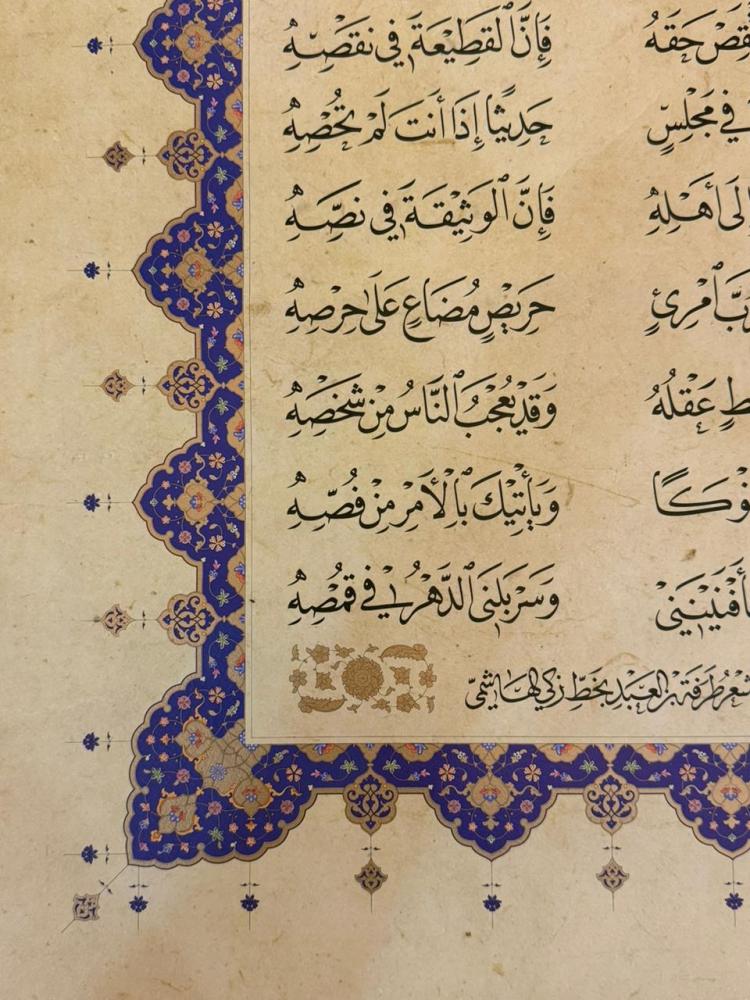 ـقص حَقَهُ فَإِنَّ ٱلقَطِيْعَةَ في نَقصِهْ
في مَجْلِسٍ حَدِيثًا إِذَا أَنتَ لَمْ تُحْصِهْ
إلَى أَهْلِهْ فَإِنَّ ٱلوَثِيْقَةَ في نَصِّهْ
ـرُبَّ ٱمْرِئٍ حَرِيْصٍ مُضَاعٍ عَلَى حِرْصِهْ
ـطٍ عَقْلُهُ وَقَدْ يُعْجَبُ ٱلنَّاسُ مِنْ شَخْصِهْ
ـوَكًا وَيَأْتِيْكَ بِالْأَمْرِ مِنْ فُصِّهْ
أَفْنَيْنَنِي وَسَرْبَلَنِى ٱلدَّهْرُ في قُمْصِهْ
شعر طرفة بن العبد بخط زكي الهاشمي